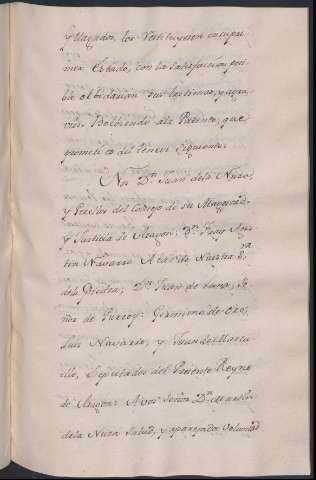 y llagados, los restituyesen en su pri
mer Estado, con la satisfaccion posi
ble olbidarian sus lastimas, y agra
vios. Bolbiendo a la Patente, que
prometi es del thenor siguiente.
Nos Dn. Juan de la Nuza,
y Perellos del Consejo de su Magestad,
y Justicia de Aragon; Dn. Fray Agus
tin Navarro Abad de Nuestra Sra.
de la Piedra; Dn. Juan de Luna, Se
ñor de Purroy: Geronimo de Oro,
Luis Navarro, y Juan de Marcu
ello, Diputados del Presente Reyno
de Aragon: A vos Señor Dn. Martin
de la Nuza Salud, y aparejada voluntad